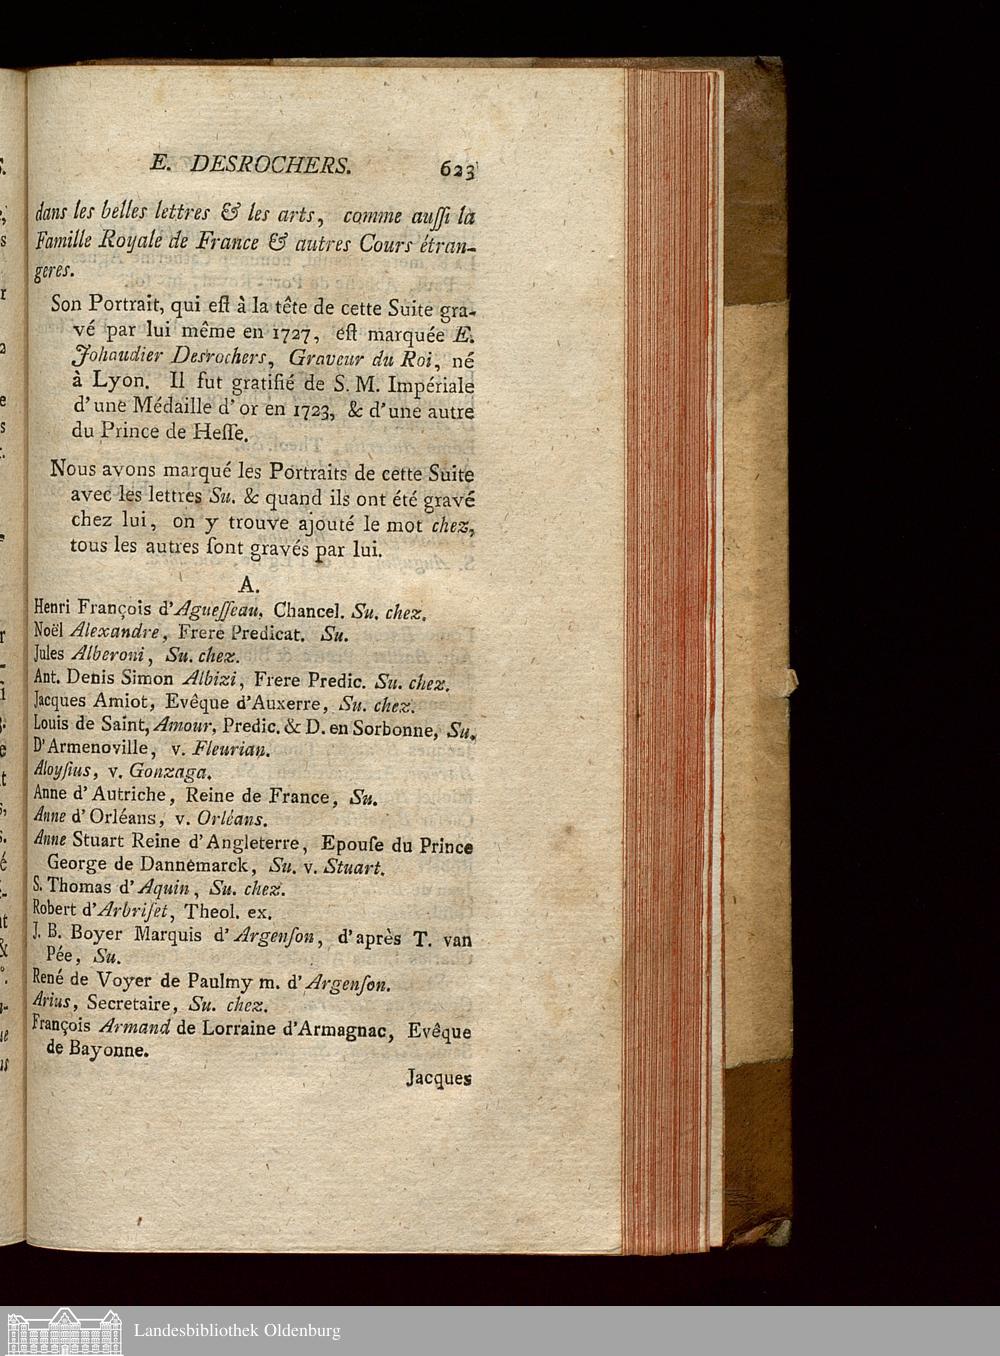 E. DESROCHERS. 623
dans les belles lettres & les arts, comme auſſi la
Famille Royale de France & autres Cours étran-
geres.
Son Portrait, qui eſt à la tête de cette Suite gra-
vé par lui même en 1727, eſt marquée E.
Johaudier Desrochers, Graveur du Roi, né
à Lyon. Il fut gratifié de S. M. Impériale
d'une Médaille d'or en 1723, & d'une autre
du Prince de Heſſe.
Nous avons marqué les Portraits de cette Suite
avec les lettres Su. & quand ils ont été gravé
chez lui, on y trouve ajouté le mot chez,
tous les autres ſont gravés par lui.
A.
Henri François d'Agueſſeau, Chancel. Su. chez.
Noël Alexandre, Frere Predicat. Su.
Jules Alberoni, Su. chez.
Ant. Denis Simon Albizi, Frere Predic. Su. chez.
Jacques Amiot, Evêque d'Auxerre, Su. chez.
Louis de Saint, Amour, Predic. & D. en Sorbonne, Su.
D'Armenoville, v. Fleurian.
Aloyſius, v. Gonzaga.
Anne d'Autriche, Reine de France, Su.
Anne d'Orléans, v. Orléans.
Anne Stuart Reine d'Angleterre, Epouſe du Prince
George de Dannemarck, Su. v. Stuart.
S. Thomas d'Aquin, Su. chez.
Robert d'Arbriſet, Theol. ex.
J. B. Boyer Marquis d'Argenſon, d'après T. van
Pée, Su.
René de Voyer de Paulmy m. d'Argenſon.
Arius, Secretaire, Su. chez.
François Armand de Lorraine d'Armagnac, Evêque
de Bayonne.
Jacques
Landesbibliothek Oldenburg